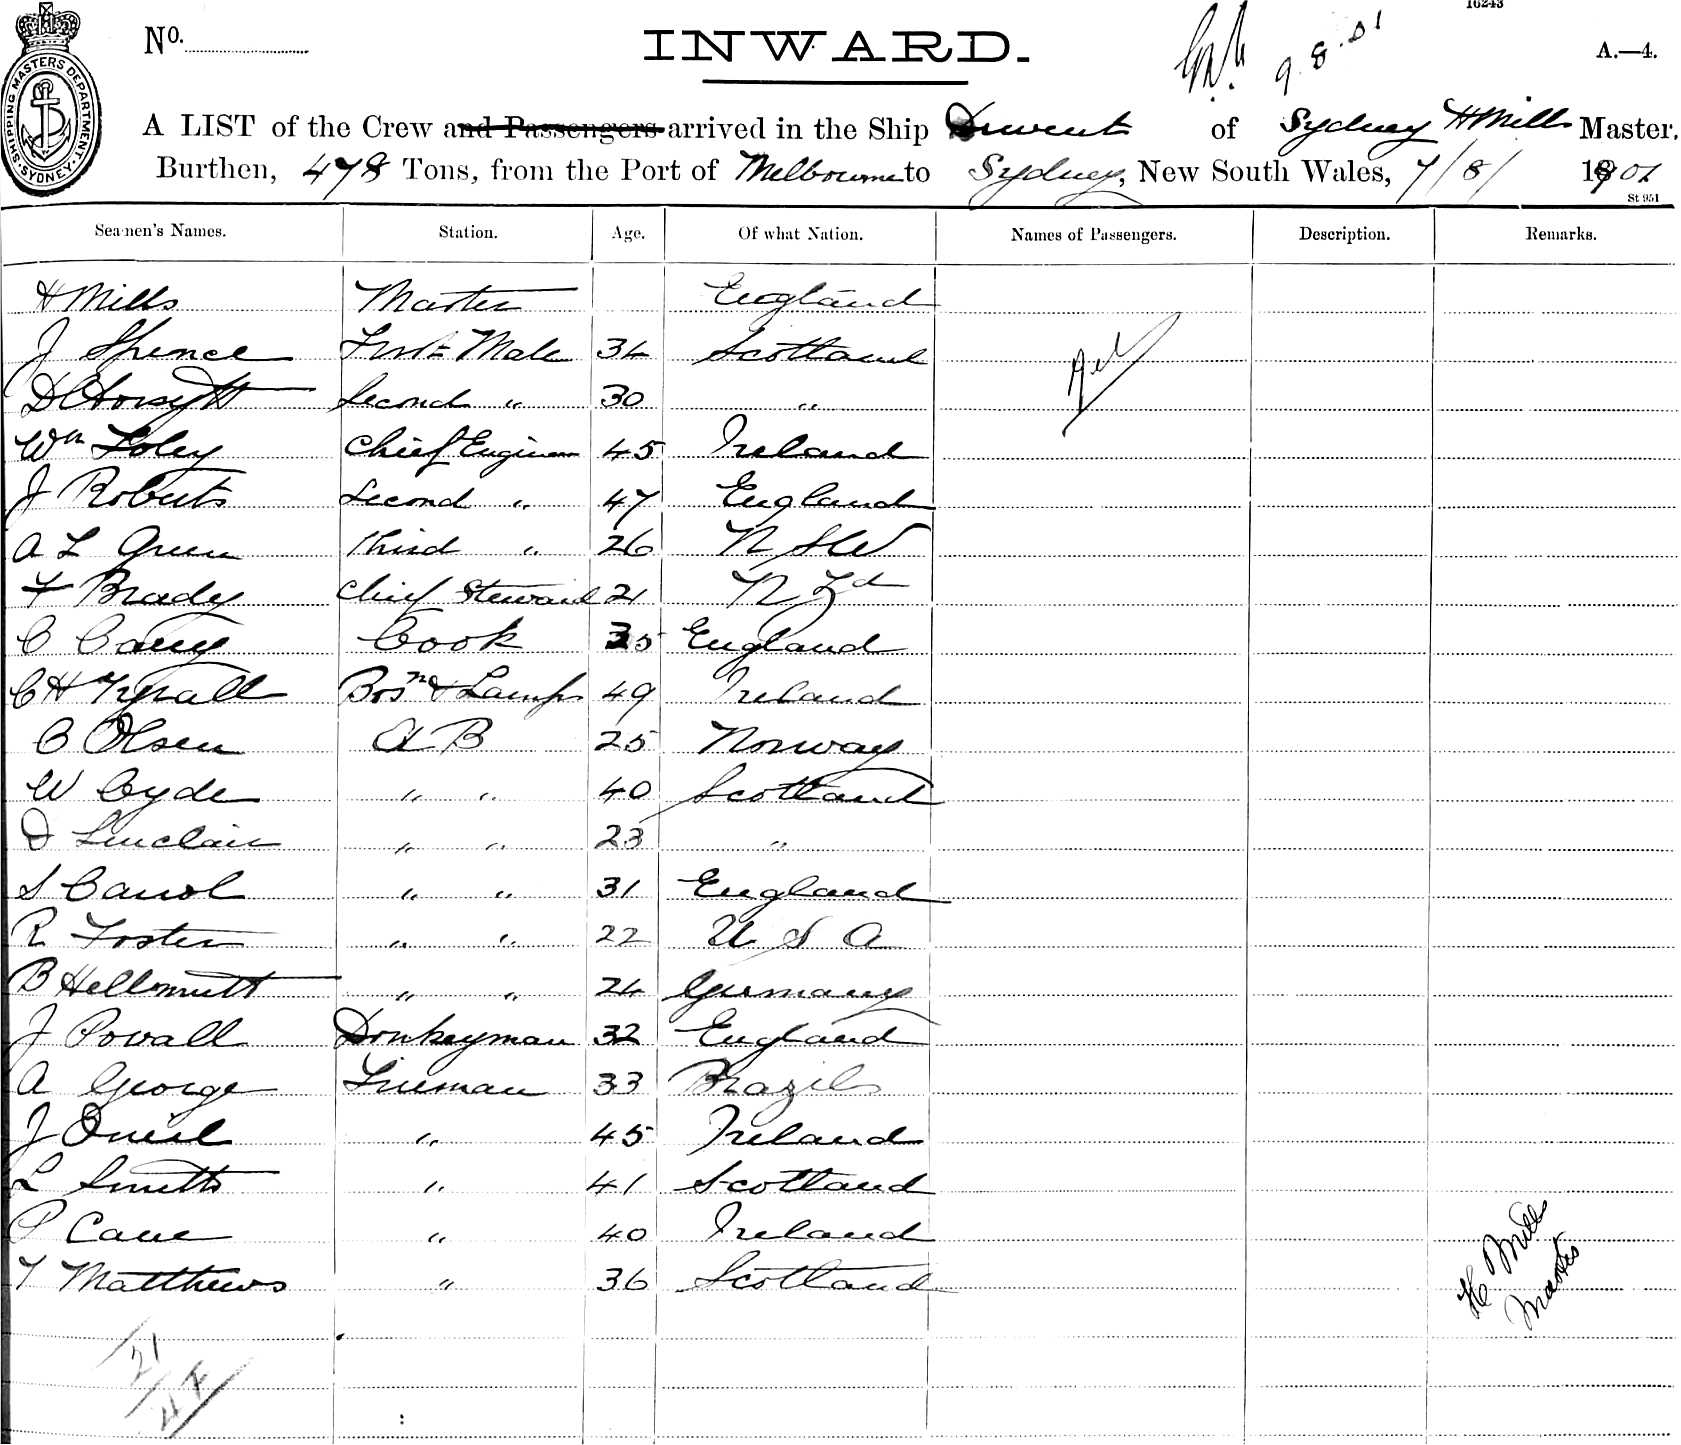 16243
No.
INWARD.
9.8.01
A.—4.
SHIPPING MASTERS DEPARTMENT. SYDNEY.
A LIST of the Crew and Passengers arrived in the Ship Derwent of Sydney H Mills Master.
Burthen, 478 Tons, from the Port of Melbourne to Sydney, New South Wales, 7/8/ 1901
St 951
Seamen's Names. Station. Age. Of what Nation. Names of Passengers. Description. Remarks.
H Mills Master England
J Spence First Mate 34 Scotland
D C Forsyth Second " 30 "
Wm Foley Chief Engineer 45 Ireland
J Roberts Second " 47 England
A L Green Third " 26 N S W
F Brady Chief Steward 21 N Zd
C Carey Cook 35 England
C H Tyrall Bosn & Lamps 49 Ireland
C Olsen A B 25 Norway
W Clyde " " 40 Scotland
D Sinclair " " 23 "
S Carrol " " 31 England
R Foster " " 22 U S A
B Hellmutt " " 24 Germany
J Povall Donkeyman 32 England
A George Fireman 33 Brazils
J Oneil " 45 Ireland
L Smith " 41 Scotland
P Cane " 40 Ireland
T Matthews " 36 Scotland
H Mills
Master
21